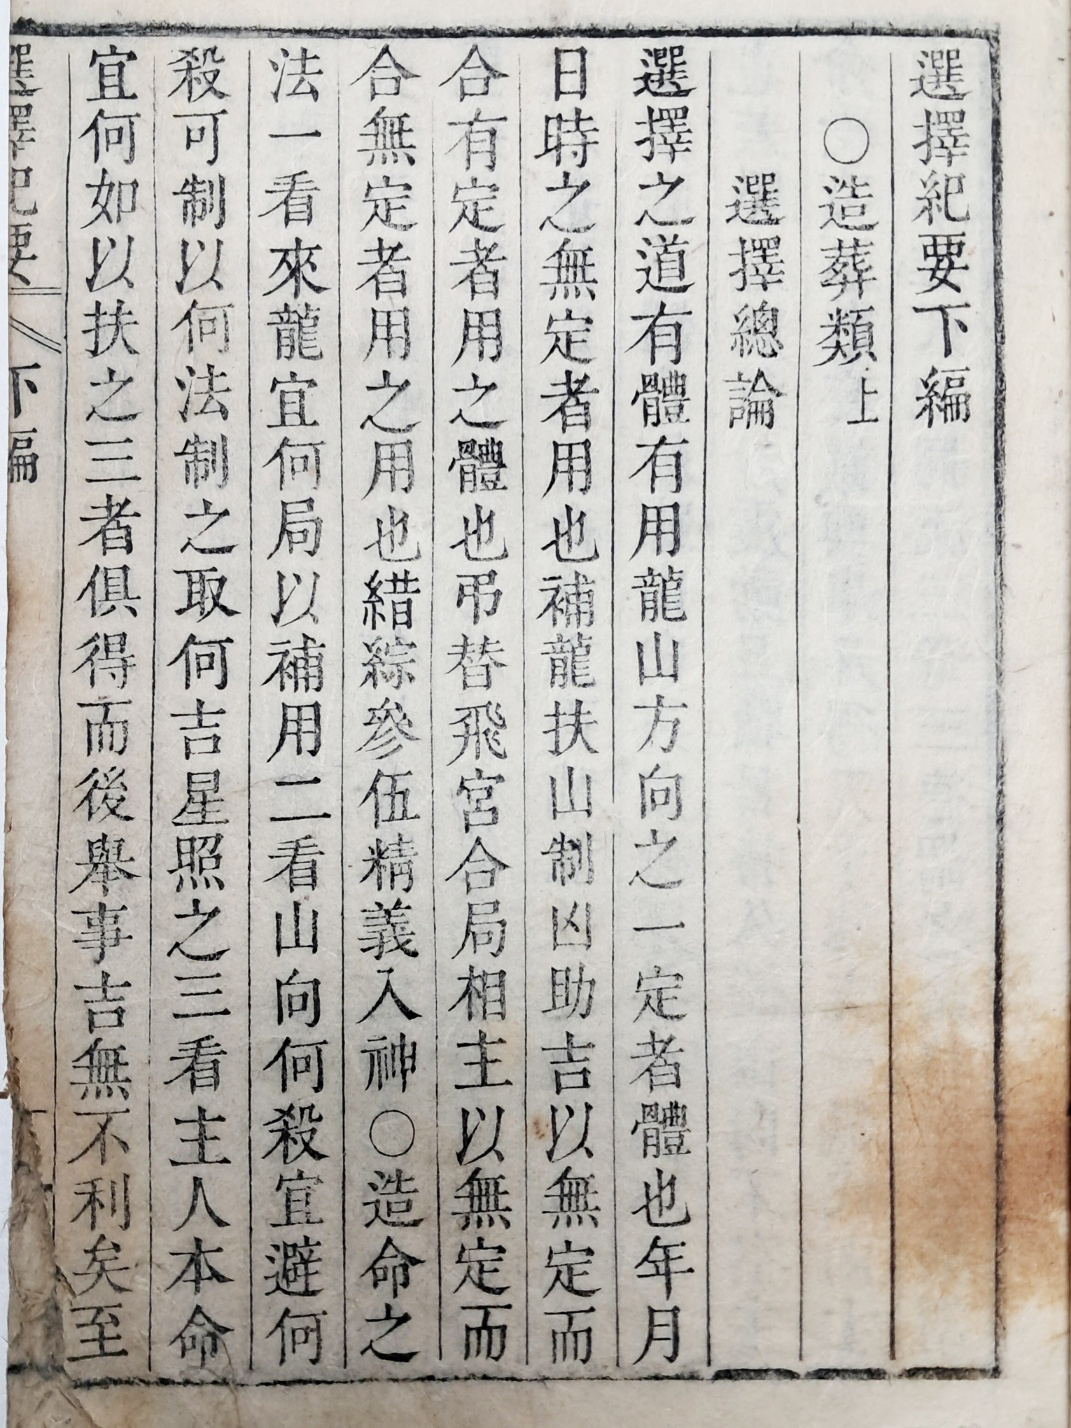 選擇紀要下編
○造葬類上
選擇總論
選擇之道有體有用龍山方向之一定者體也年月
日時之無定者用也補龍扶山制凶助吉以無定而
合有定者用之體也弔替飛宮合局相主以無定而
合無定者用之用也緒綜參伍精義入神○造命之
法一看來龍宜何局以補用二看山向何殺宜避何
殺可制以何法制之取何吉星照之三看主人本命
宜何如以扶之三者俱得而後舉事吉無不利矣至
選擇紀要 下編